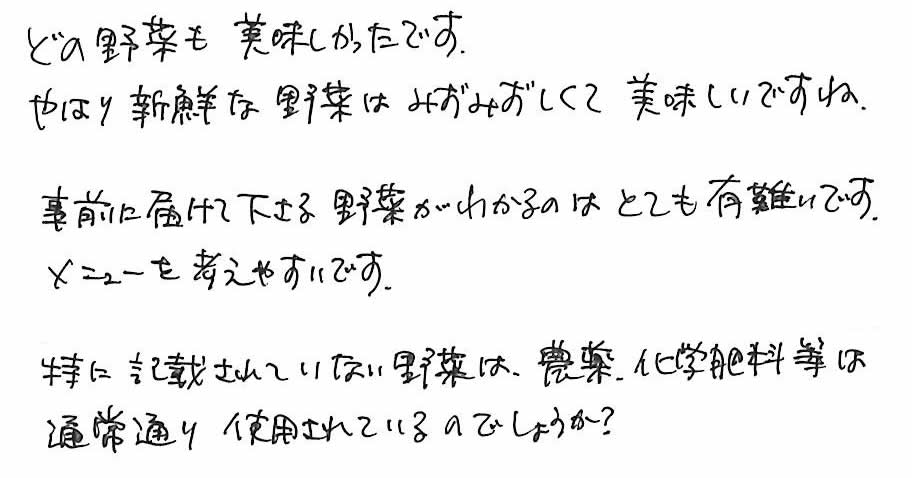 どの野菜も 美味しかったです.
やはり 新鮮な 野菜は みずみずしくて 美味しいですね.
事前に届けて下さる 野菜がわかるのは とても 有難いです.
メニューを 考えやすいです.
特に 記載されていない野菜は、農薬、化学肥料等は
通常通り 使用されているのでしょうか?